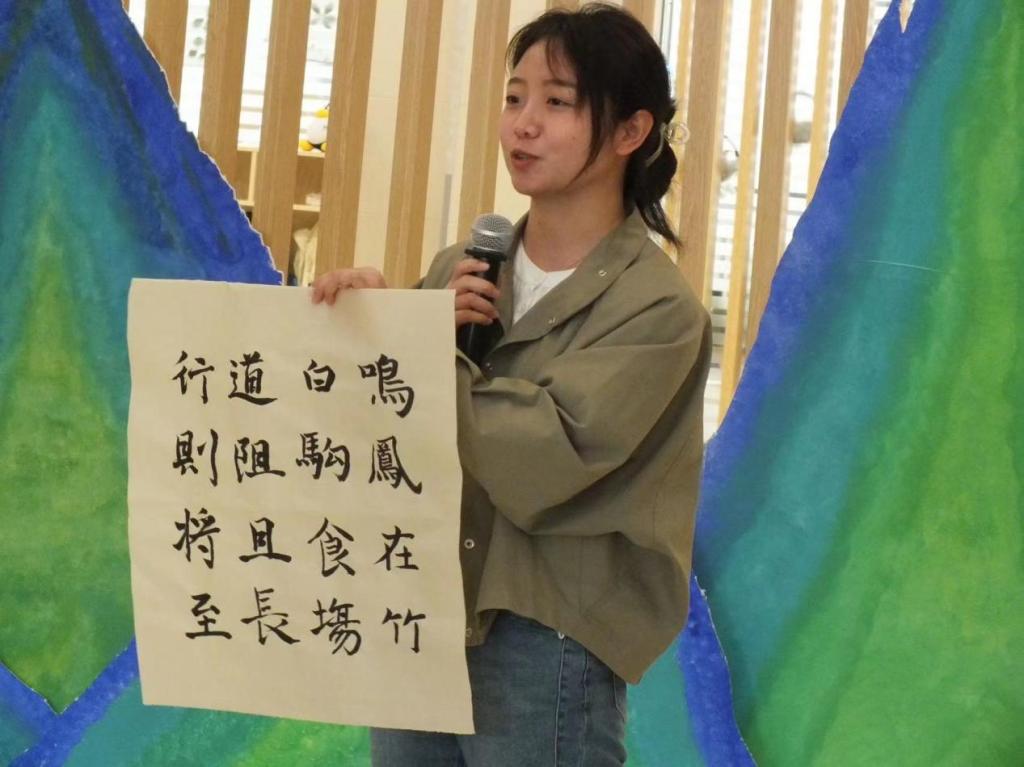 鳴鳳在竹
白駒食場
道阻且長
行則将至